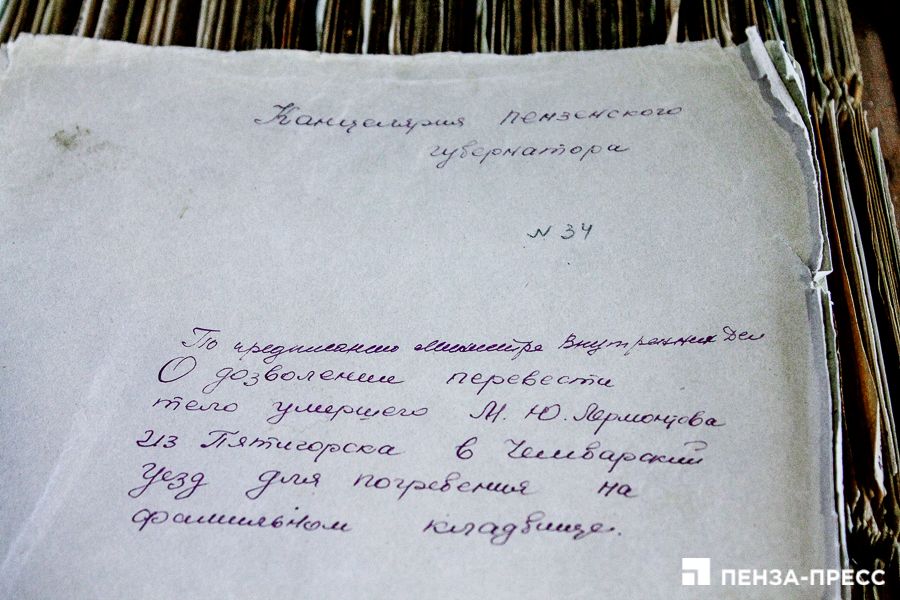 Канцелярия пензенского
губернатора
N 34
По предписанию Министра Внутренних Дел
О дозволении перевести
тело умершего М. Ю. Лермонтова
из Пятигорска в Чембарский
уезд для погребения на
фамильном кладбище.
ПЕНЗА-ПРЕСС